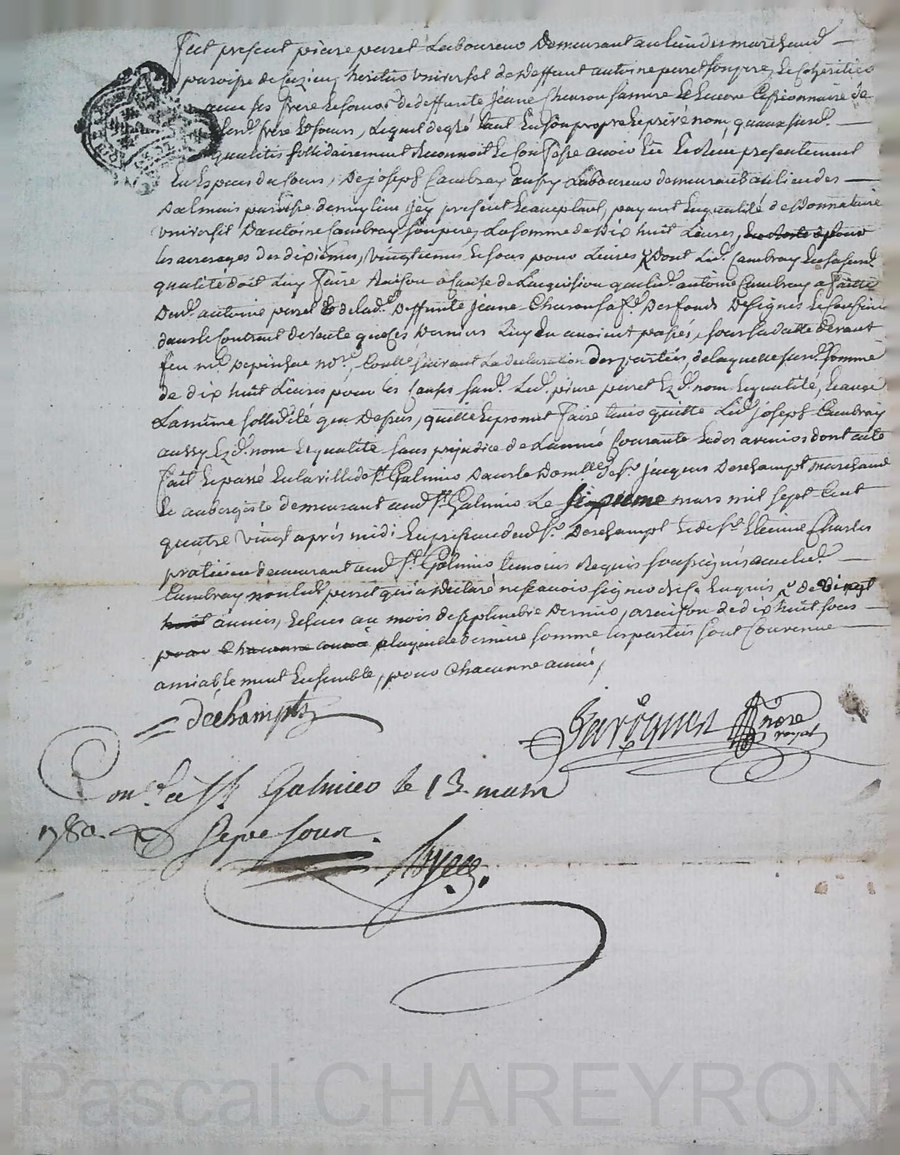 fut présent pierre perret Laboureur Demeurant au lieu des marchand
paroisse de Cuzieu héritier universel de deffunt antoine peret son pere, et Cohéritier
avec ses frère et soeur de deffunte jeane Charon sa mere et encore Cessionnaire de
frère et soeurs, Lequel de gré tant en son propre et privé nom, qu'aux susd.
qualités sollidairement Reconnoit et Confesse avoir Eté et Reçu presentement
En Espèces du Cours, De joseph Cambray aussy Laboureur demeurant au lieu des
paroisse de icy présent et acceptant, payant En qualité de Donnataire
universel D'antoine Cambray son pere, La somme de Dix huit Livres,
les arrerages des dixiemes, vingtiemes et sous pour Livres Dont Lud. Cambray En sa susd.
qualité doit Luy faire Raison a cause de L'acquisition que led. antoine Cambray a faitte
Dud. antoine peret et de lad. Deffunte jeane Charon sa f. Des fonds Designés et
dans le Contrat de vente que Ces Derniers Luy En avoient passés, sous sa datte devant
feu me Depinhac nore, Contte suivant La declaration des parties, de laquelle sus. somme
de dix huit Livres pour les Causes susd. Led. pierre peret Ezd. nom et qualité, Et avec
La même sollidité que Dessus, quitte Et promet faire tenir quitte Led. joseph Cambray
aussy Ezd. nom et qualité sans prejudice de L'année Courante et des avenir dont acte
fait et passé En la ville de St. Galmier Dans le Domicille de Sr. jacques Deschampt Marchand
et aubergiste demeurant aud. St. Galmier Le sixieme mars mil sept Cent
quatre vingt après midi En presence dud. Sr. Deschampt et de Sr. Etienne Charles
praticien demeurant aud. St. Galmier temoins Requis soussignés avec led.
Cambray non led. perret qui a déclaré ne sçavoir signer de ce Enquis de vingt
huit années, Echues au mois de septembre Dernier, a raison de dix huit sous
pour Chacune année a laquelle derniere somme les parties sont Convenue
amiablement Ensemble, pour Chacunne année,
deChampts
nore
royal
Con.lé a St Galmier le 13. mars
1780.